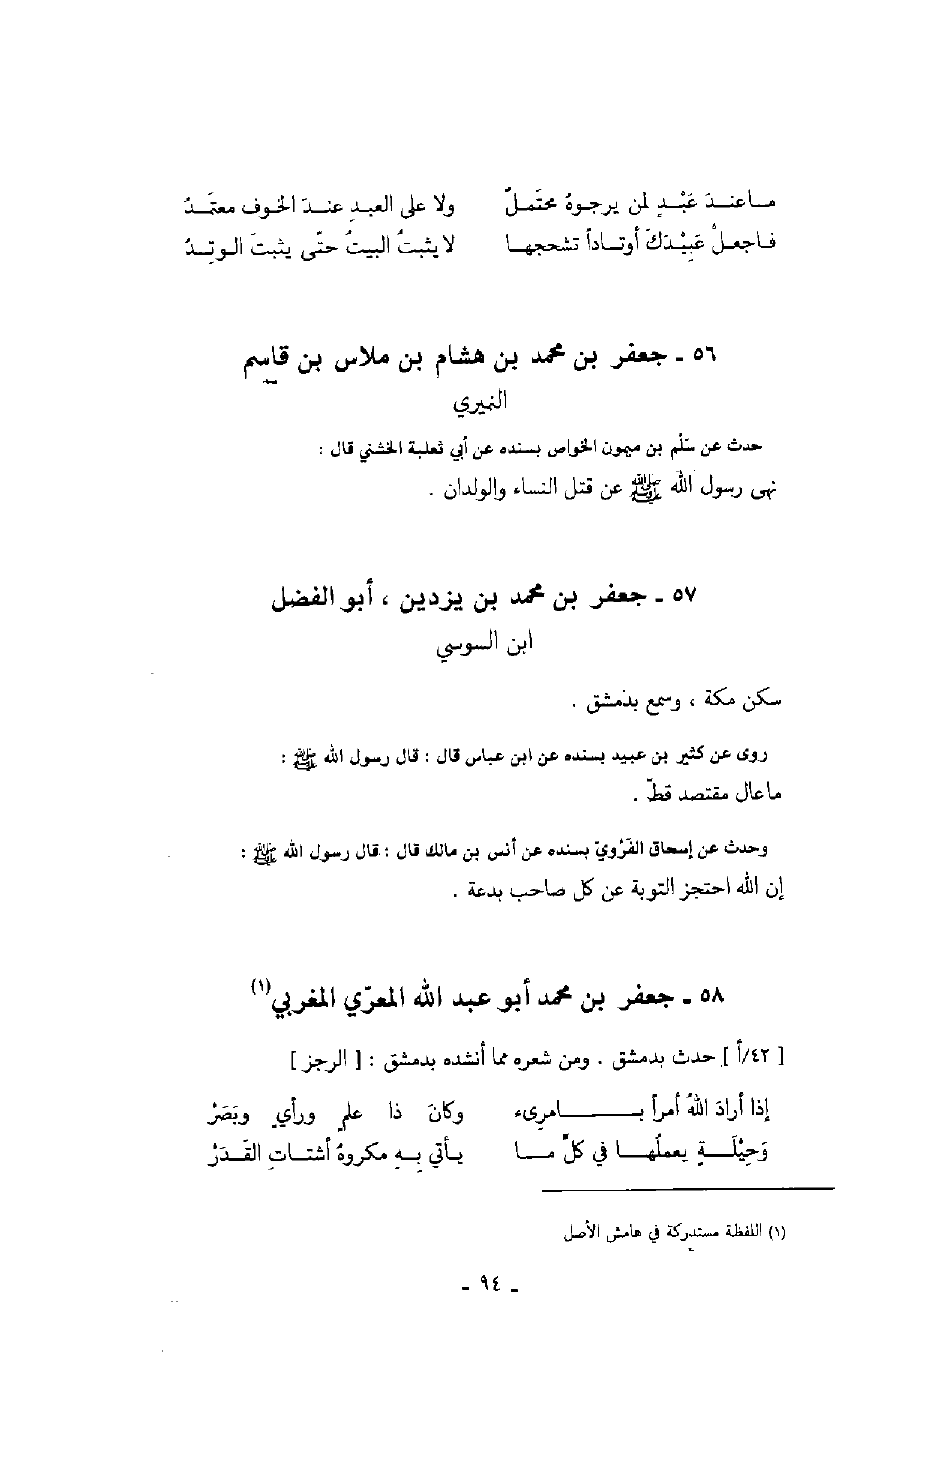 ما عندَ عَبْدٍ لمن يرجوهُ محتَملٌ    ولا على العبدِ عندَ الخوف معتمَدُ
فاجعلْ عَبِيْدَكَ أوتاداً تشحجها    لا يثبتُ البيتُ حتّى يثبتَ الوتِدُ
٥٦ ـ جعفر بن محمد بن هشام بن ملاس بن قاسم
النميري
حدث عن سَلْم بن ميمون الخواص بسنده عن أبي ثعلبة الخشني قال :
نهى رسول الله ﷺ عن قتل النساء والولدان .
٥٧ ـ جعفر بن محمد بن يزدين ، أبو الفضل
ابن السوسي
سكن مكة ، وسمع بدمشق .
روى عن كثير بن عبيد بسنده عن ابن عباس قال : قال رسول الله ﷺ :
ما عال مقتصد قطّ .
وحدث عن إسحاق الفَرْويّ بسنده عن أنس بن مالك قال : قال رسول الله ﷺ :
إن الله احتجز التوبة عن كل صاحب بدعة .
٥٨ ـ جعفر بن محمد أبو عبد الله المعرّي المغربي(١)
[ ٤٢/أ ] حدث بدمشق . ومن شعره مما أنشده بدمشق : [ الرجز ]
إذا أرادَ اللهُ أمراً بامرىء    وكانَ ذا علمٍ ورأيٍ وبَصَرْ
وَحِيْلَةٍ يعملُها في كلِّ ما    يأتي بهِ مكروهُ أشتاتِ القَدَرْ
(١) اللفظة مستدركة في هامش الأصل
ـ ٩٤ ـ